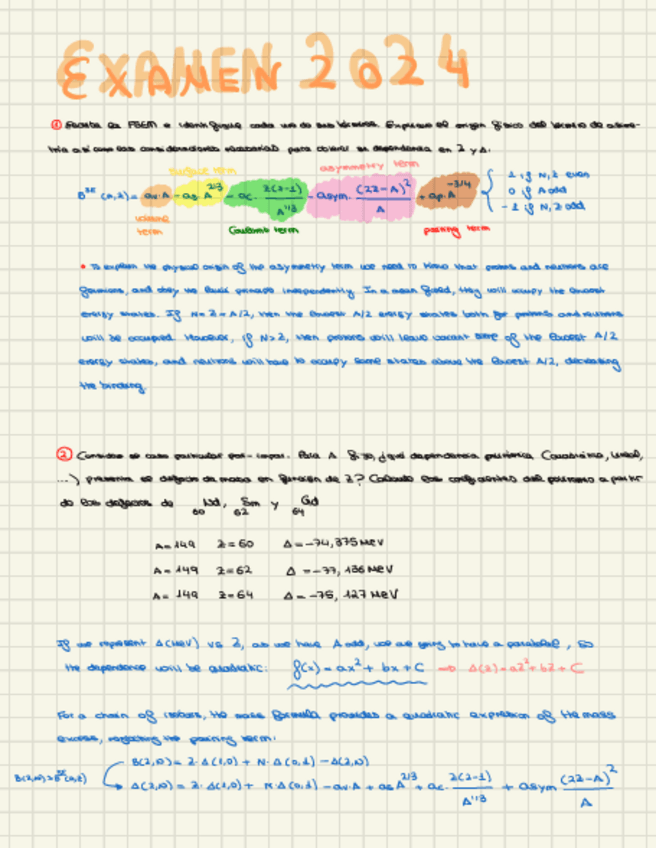 EXAMEN 2024
① Escriba la FSEM e identifique cada uno de sus términos. Explique el origen físico del término de asime-
tría así como las consideraciones necesarias para obtener su dependencia en Z y A.
surface term
asymmetry term
B^SE (A,Z) = av·A - as·A^2/3 - ac· Z(Z-1)/A^1/3 - asym· (2Z-A)^2/A + ap·A^-3/4 { 1 if N,Z even
0 if A odd
-1 if N,Z odd
volume
term
Coulomb term
pairing term
• To explain the physical origin of the asymmetry term we need to know that protons and neutrons are
fermions, and obey the Pauli principle independently. In a mean field, they will occupy the lowest
energy states. If N=Z=A/2, then the lowest A/2 energy states both for protons and neutrons
will be occupied. However, if N>Z, then protons will leave vacant some of the lowest A/2
energy states, and neutrons will have to occupy some states above the lowest A/2, decreasing
the binding.
② Considere el caso particular par-impar. Para A fijo, ¿qué dependencia polinómica (cuadrática, lineal,
...) presenta el defecto de masa en función de Z? Calcule los coeficientes del polinomio a partir
de los defectos de 60Nd, 62Sm y 64Gd
A=149 Z=60 Δ=-74,375 MeV
A=149 Z=62 Δ=-77,136 MeV
A=149 Z=64 Δ=-75,127 MeV
If we represent Δ(MeV) vs Z, as we have A odd, we are going to have a parabola, so
the dependence will be quadratic: f(x) = ax²+bx+c ⇒ Δ(Z)=aZ²+bZ+C
For a chain of isobars, the mass formula provides a quadratic expression of the mass
excess, neglecting the pairing term:
B(Z,N) = Z·Δ(1,0) + N·Δ(0,1) - Δ(Z,N)
B(Z,N)≃B^SE(A,Z)
Δ(Z,N) = Z·Δ(1,0) + N·Δ(0,1) - av·A + as A^2/3 + ac· Z(Z-1)/A^1/3 + asym (2Z-A)^2/A